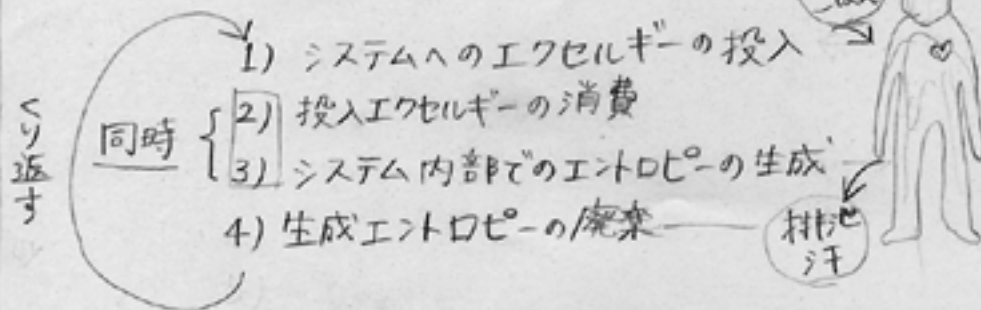 1) システムへのエクセルギーの投入
2) 投入エクセルギーの消費
3) システム内部でのエントロピーの生成
4) 生成エントロピーの廃棄
同時
くり返す
排泄
汗